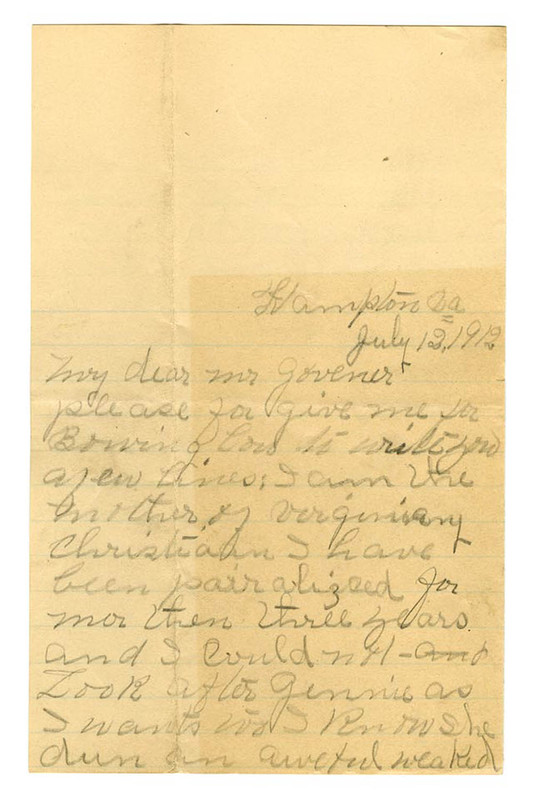 Hampton Va
July 12, 1912
My dear mr Govener
please for give me for
Bowing low to write you
a few lines: I am the
mother of Virginiany
Christian I have
been pairalized for
mor then three years
and I could not and
Look after Gennie as
I wants too I Know she
dun an aweful weaked